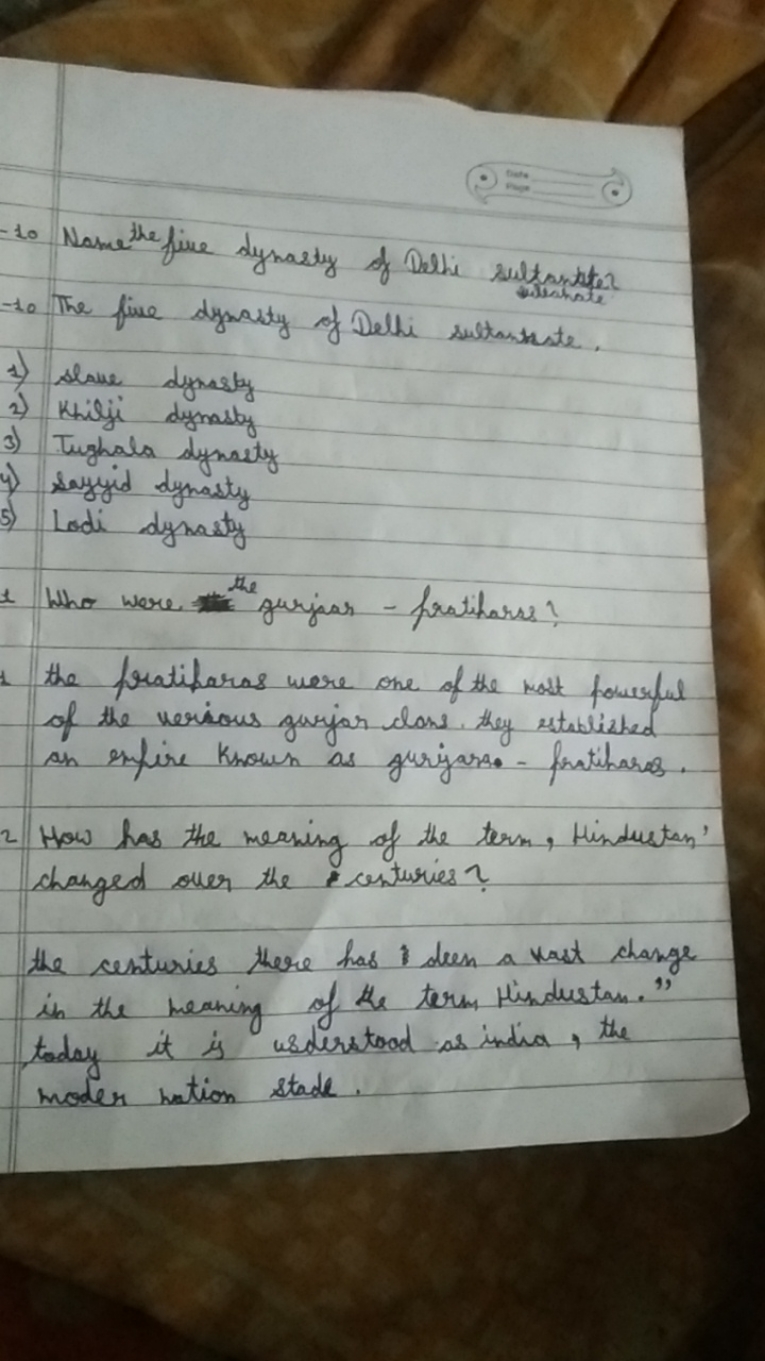 Date
Page
-10 Name the five dynasty of Delhi sultanate?
sultanate
-10 The five dynasty of Delhi sultanate.
1) slave dynasty
2) Khilji dynasty
3) Tughala dynasty
4) Sayyid dynasty
5) Lodi dynasty
1 Who were the gurjaar - pratiharas?
1 the pratiharas were one of the most powerful
of the verious gurjar clans. they established
an enpire known as gurjara - pratiharas.
2 How has the meaning of the term, Hindustan'
changed over the centuries?
the centuries there has deen a vast change
in the meaning of the term Hindustan."
today it is usderstood as india, the
moder nation stade.